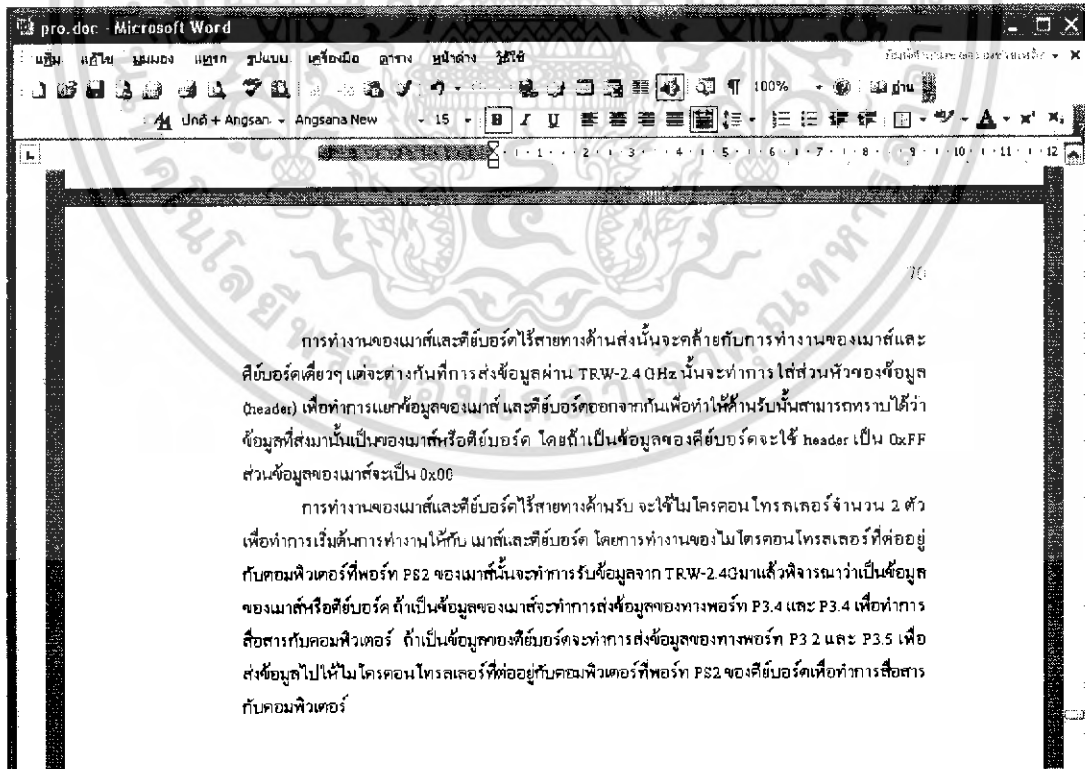 pro.doc - Microsoft Word
แฟ้ม แก้ไข มุมมอง แทรก รูปแบบ เครื่องมือ ตาราง หน้าต่าง วิธีใช้
100% อ่าน
ปกติ + Angsan Angsana New 15 B I U
1 2 3 4 5 6 7 8 9 10 11 12
70
การทำงานของเมาส์และคีย์บอร์ดไร้สายทางด้านส่งนั้นจะคล้ายกับการทำงานของเมาส์และ
คีย์บอร์ดเดี่ยวๆ แต่จะต่างกันที่การส่งข้อมูลผ่าน TRW-2.4 GHz นั้นจะทำการใส่ส่วนหัวของข้อมูล
(header) เพื่อทำการแยกข้อมูลของเมาส์ และคีย์บอร์ดออกจากกันเพื่อทำให้ด้านรับนั้นสามารถทราบได้ว่า
ข้อมูลที่ส่งมานั้นเป็นของเมาส์หรือคีย์บอร์ด โดยถ้าเป็นข้อมูลของคีย์บอร์ดจะใช้ header เป็น 0xFF
ส่วนข้อมูลของเมาส์จะเป็น 0x00
การทำงานของเมาส์และคีย์บอร์ดไร้สายทางด้านรับ จะใช้ไมโครคอนโทรลเลอร์จำนวน 2 ตัว
เพื่อทำการเริ่มต้นการทำงานให้กับ เมาส์และคีย์บอร์ด โดยการทำงานของไมโครคอนโทรลเลอร์ที่ต่ออยู่
กับคอมพิวเตอร์ที่พอร์ท PS2 ของเมาส์นั้นจะทำการรับข้อมูลจาก TRW-2.4Gมาแล้วพิจารณาว่าเป็นข้อมูล
ของเมาส์หรือคีย์บอร์ด ถ้าเป็นข้อมูลของเมาส์จะทำการส่งข้อมูลของทางพอร์ท P3.4 และ P3.4 เพื่อทำการ
สื่อสารกับคอมพิวเตอร์ ถ้าเป็นข้อมูลของคีย์บอร์ดจะทำการส่งข้อมูลของทางพอร์ท P3 2 และ P3.5 เพื่อ
ส่งข้อมูลไปให้ไมโครคอนโทรลเลอร์ที่ต่ออยู่กับคอมพิวเตอร์ที่พอร์ท PS2 ของคีย์บอร์ดเพื่อทำการสื่อสาร
กับคอมพิวเตอร์